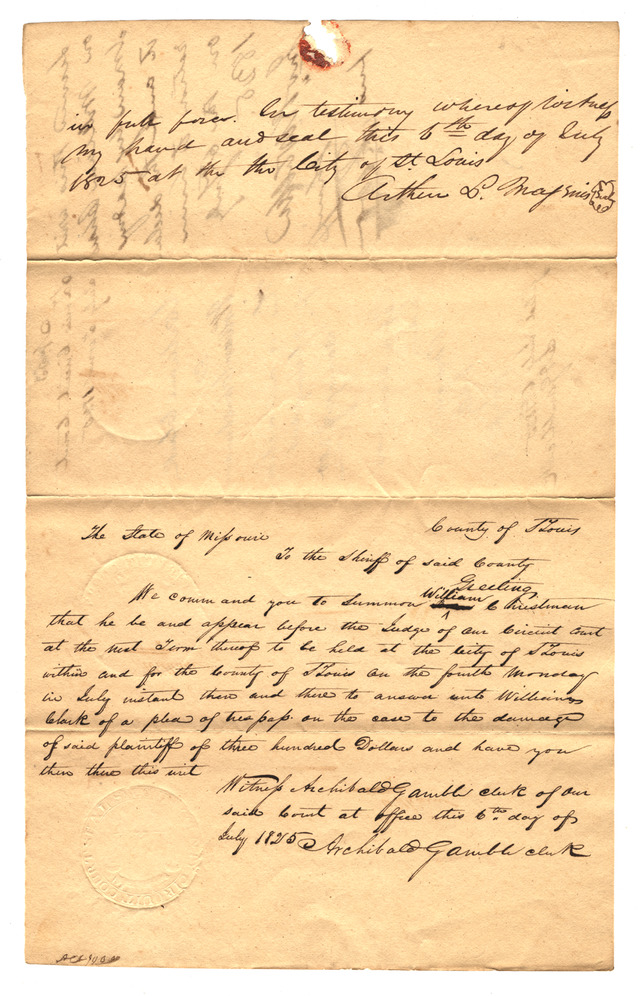 in full force. In testimony whereof witness
my hand and seal this 6th day of July
1825 at the the City of St. Louis
Arthur L. Magenis
The State of Missouri County of St Louis
To the Shiriff of said County
Greeting
We command you to Summon William Christman
that he be and appear before the Judge of our Circuit Court
at the next Term thereof to be held at the City of St Louis
within and for the County of St Louis on the fourth Monday
in July instant then and there to answer unto William
Clark of a plea of trespass on the case to the damage
of said plaintiff of three hundred Dollars and have you
then there this writ
Witness Archibald Gamble clerk of our
said Court at office this 6th day of
July 1825 Archibald Gamble clerk